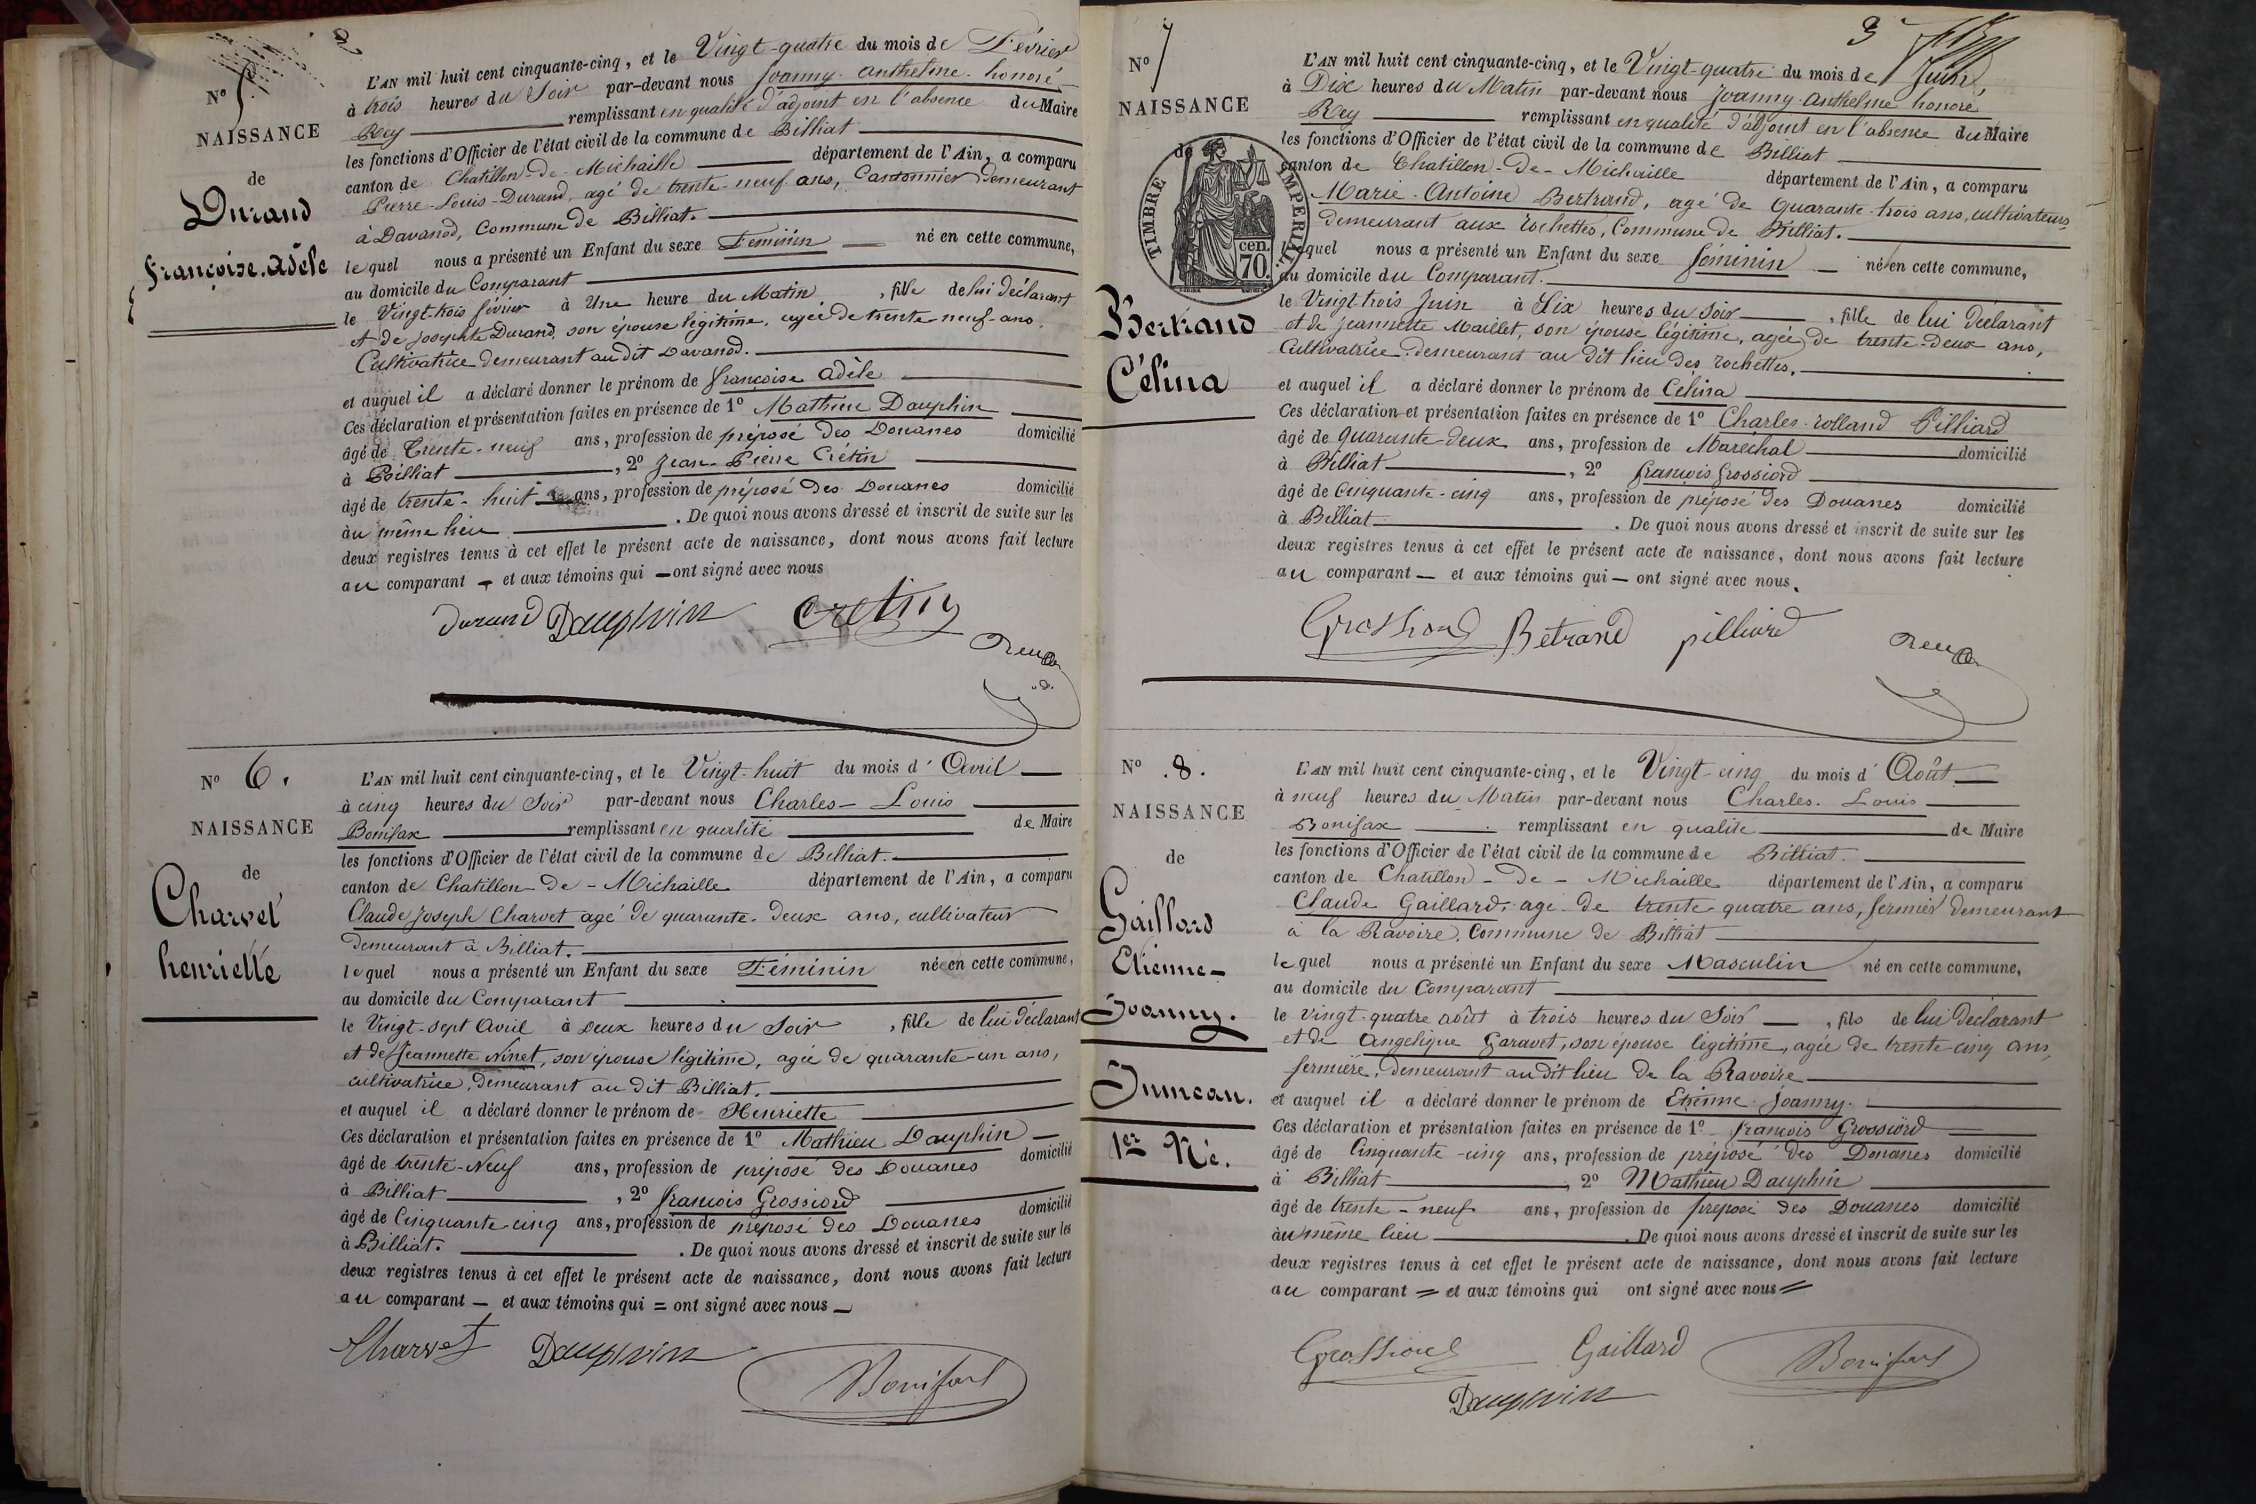 2
N° 5.
NAISSANCE
de
Durand
françoise. adèle
L'AN mil huit cent cinquante-cinq, et le Vingt-quatre du mois de Février
à trois heures du Soir par-devant nous Joanny anthelme honoré
Rey remplissant en qualité d'adjoint en l'absence du Maire
les fonctions d'Officier de l'état civil de la commune de Billiat
canton de Chatillon-de-Michaille département de l'Ain, a comparu
Pierre-Louis-Durand, agé de trente-neuf ans, Cantonnier demeurant
à Davanod, Commune de Billiat.
lequel nous a présenté un Enfant du sexe Féminin né en cette commune,
au domicile du Comparant
le Vingt-trois février à Une heure du Matin, fille de lui déclarant
et de josephte Durand, son épouse légitime, agée de trente-neuf-ans,
Cultivatrice demeurant au dit Davanod.
et auquel il a déclaré donner le prénom de françoise adèle
Ces déclaration et présentation faites en présence de 1° Mathieu Dauphin
âgé de Trente-neuf ans, profession de préposé des Douanes domicilié
à Billiat, 2° Jean-Pierre Crétin
âgé de trente-huit ans, profession de préposé des Douanes domicilié
au même lieu. De quoi nous avons dressé et inscrit de suite sur les
deux registres tenus à cet effet le présent acte de naissance, dont nous avons fait lecture
au comparant et aux témoins qui ont signé avec nous
Durand Dauphin Cretin
N° 6.
NAISSANCE
de
Charvet
henriette
L'AN mil huit cent cinquante-cinq, et le Vingt-huit du mois d'Avril
à cinq heures du Soir par-devant nous Charles-Louis
Bonifax remplissant en qualité de Maire
les fonctions d'Officier de l'état civil de la commune de Billiat.
canton de Chatillon-de-Michaille département de l'Ain, a comparu
Claude joseph Charvet agé de quarante-deux ans, cultivateur
demeurant à Billiat.
lequel nous a présenté un Enfant du sexe Féminin née en cette commune,
au domicile du Comparant
le Vingt-sept Avril à Deux heures du Soir, fille de lui déclarant
et de Jeannette Ninet, son épouse légitime, agée de quarante-un ans,
cultivatrice, demeurant au dit Billiat.
et auquel il a déclaré donner le prénom de Henriette
Ces déclaration et présentation faites en présence de 1° Mathieu Dauphin
âgé de trente-Neuf ans, profession de préposé des Douanes domicilié
à Billiat, 2° françois Grossiord
âgé de Cinquante-cinq ans, profession de préposé des Douanes domicilié
à Billiat. De quoi nous avons dressé et inscrit de suite sur les
deux registres tenus à cet effet le présent acte de naissance, dont nous avons fait lecture
au comparant et aux témoins qui ont signé avec nous
Charvet Dauphin
Bonifax
3
N° 7
NAISSANCE
de
TIMBRE IMPERIAL
cen.
70.
Bertrand
Célina
L'AN mil huit cent cinquante-cinq, et le Vingt-quatre du mois de Juin,
à Dix heures du Matin par-devant nous Joanny-Anthelme honoré
Rey remplissant en qualité d'adjoint en l'absence du Maire
les fonctions d'Officier de l'état civil de la commune de Billiat
canton de Chatillon-de-Michaille département de l'Ain, a comparu
Marie-Antoine Bertrand, agé de quarante-trois ans, cultivateur
demeurant aux rochettes, Commune de Billiat.
lequel nous a présenté un Enfant du sexe féminin né en cette commune,
au domicile du Comparant.
le Vingt trois Juin à Six heures du Soir, fille de lui déclarant
et de jeannette Maillet, son épouse légitime, agée de trente-deux ans,
Cultivatrice demeurant au dit lieu des rochettes.
et auquel il a déclaré donner le prénom de Célina
Ces déclaration et présentation faites en présence de 1° Charles-rolland Pilliard
âgé de quarante-deux ans, profession de Maréchal domicilié
à Billiat, 2° françois Grossiord
âgé de Cinquante-cinq ans, profession de préposé des Douanes domicilié
à Billiat. De quoi nous avons dressé et inscrit de suite sur les
deux registres tenus à cet effet le présent acte de naissance, dont nous avons fait lecture
au comparant et aux témoins qui ont signé avec nous.
Grossiord Betrand pilliard
N° 8.
NAISSANCE
de
Gaillard
Etienne-
Joanny.
Jumeau.
1er Né.
L'AN mil huit cent cinquante-cinq, et le Vingt-cinq du mois d'Août
à neuf heures du Matin par-devant nous Charles-Louis
Bonifax remplissant en qualité de Maire
les fonctions d'Officier de l'état civil de la commune de Billiat.
canton de Chatillon-de-Michaille département de l'Ain, a comparu
Claude Gaillard, agé de trente quatre ans, fermier demeurant
à la Ravoire, Commune de Billiat
lequel nous a présenté un Enfant du sexe Masculin né en cette commune,
au domicile du Comparant
le vingt-quatre août à trois heures du Soir, fils de lui déclarant
et de Angélique Garavet, son épouse légitime, agée de trente-cinq ans,
fermière, demeurant au dit lieu de la Ravoire
et auquel il a déclaré donner le prénom de Etienne-Joanny.
Ces déclaration et présentation faites en présence de 1° françois Grossiord
âgé de Cinquante-cinq ans, profession de préposé des Douanes domicilié
à Billiat, 2° Mathieu Dauphin
âgé de trente-neuf ans, profession de préposé des Douanes domicilié
au même lieu. De quoi nous avons dressé et inscrit de suite sur les
deux registres tenus à cet effet le présent acte de naissance, dont nous avons fait lecture
au comparant et aux témoins qui ont signé avec nous
Grossiord Gaillard Bonifax
Dauphin